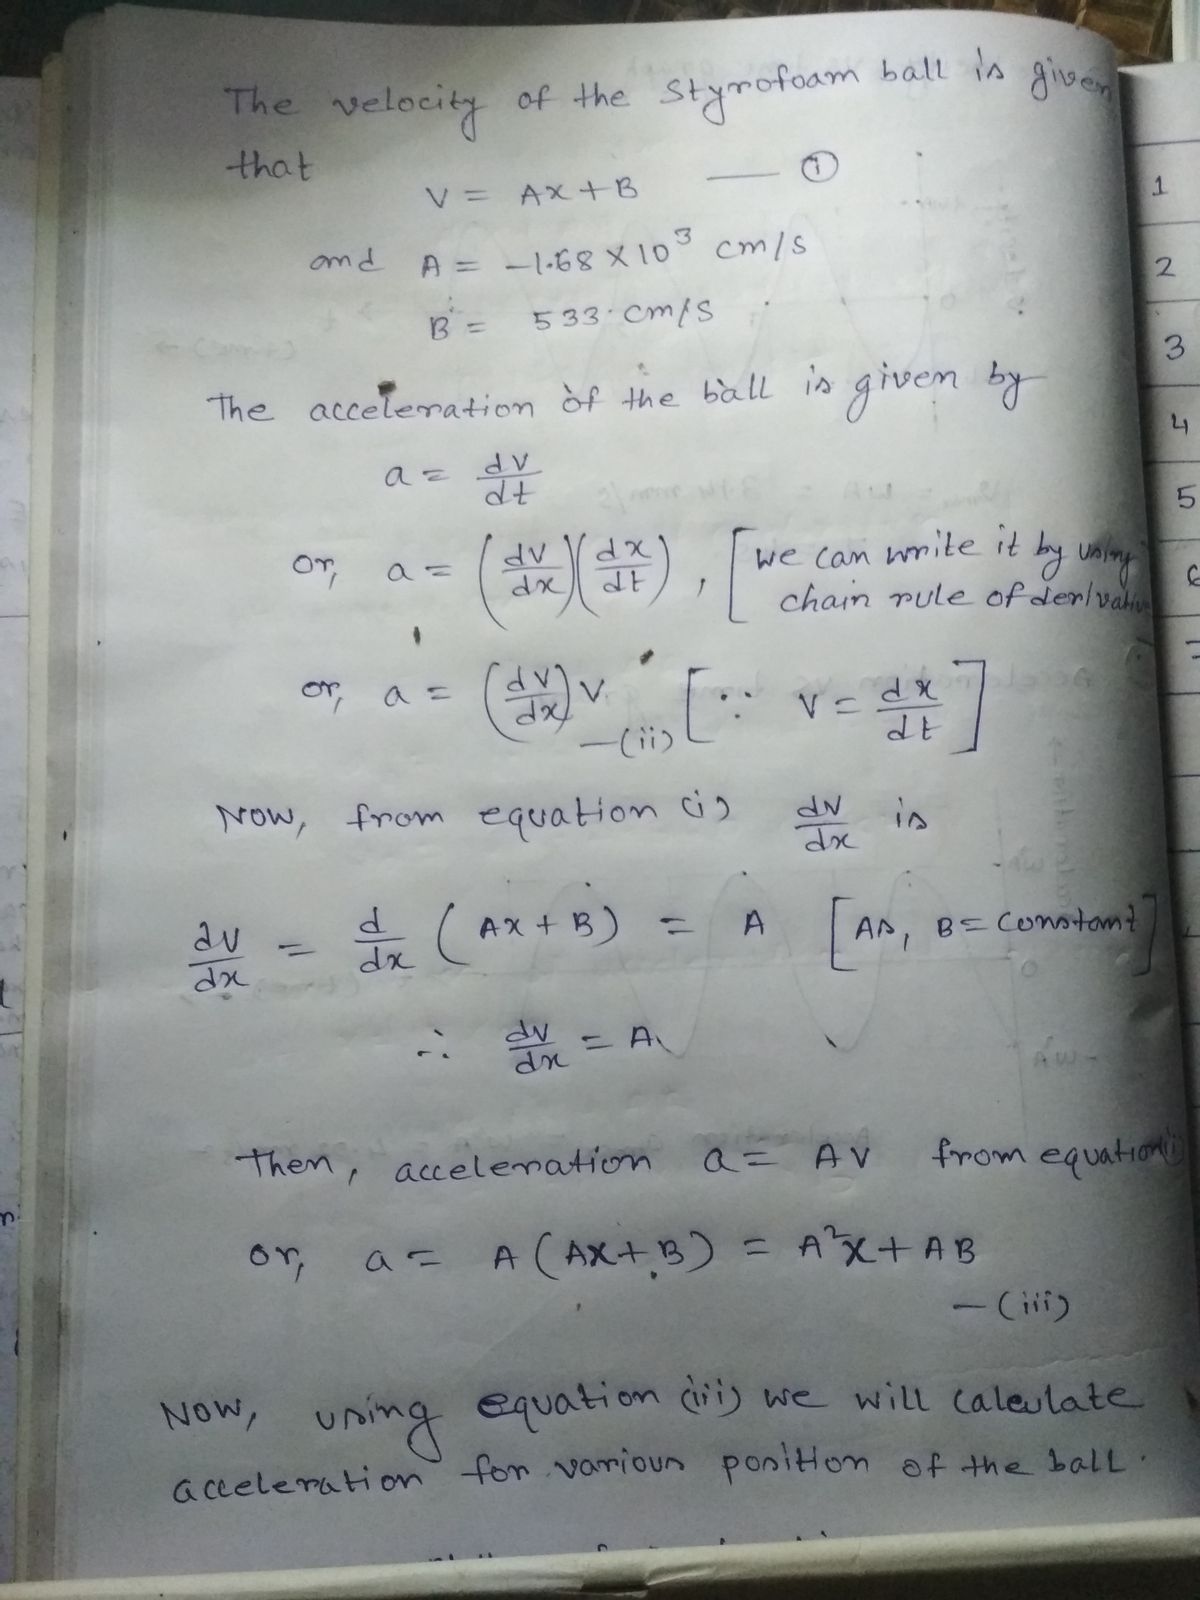 The velocity of the Styrofoam ball is given
that
V = Ax + B — ①
and A = -1.68 × 10³ cm/s
B = 533 cm/s
The acceleration of the ball is given by
a = dv/dt
or, a = (dv/dx)(dx/dt), [we can write it by using
chain rule of derivative
or, a = (dv/dx) v. —(ii) [∵ v = dx/dt]
Now, from equation (i) dv/dx is
dv/dx = d/dx (Ax + B) = A [As, B = constant]
∴ dv/dx = A
Then, acceleration a = AV from equation(ii)
or, a = A(Ax + B) = A²x + AB
—(iii)
Now, using equation (iii) we will calculate
acceleration for various position of the ball.
1
2
3
4
5